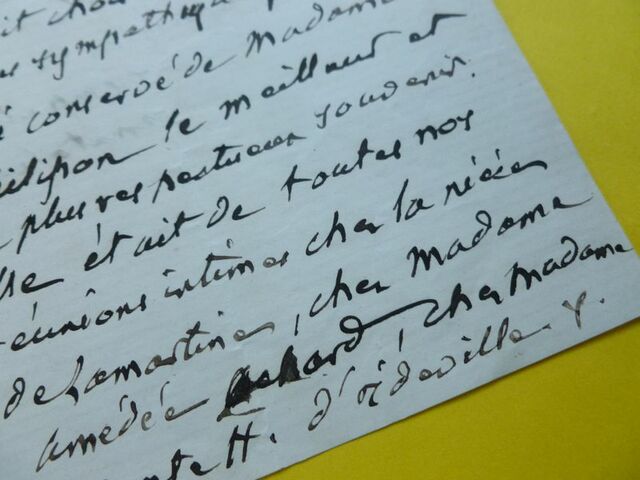 sympathique
conservé de Madame
le meilleur et
plus respectueux souvenir.
était de toutes nos
réunions intimes chez la nièce
de Lamartine, chez Madame
amédée achard, chez Madame
H. d'ideville. &.